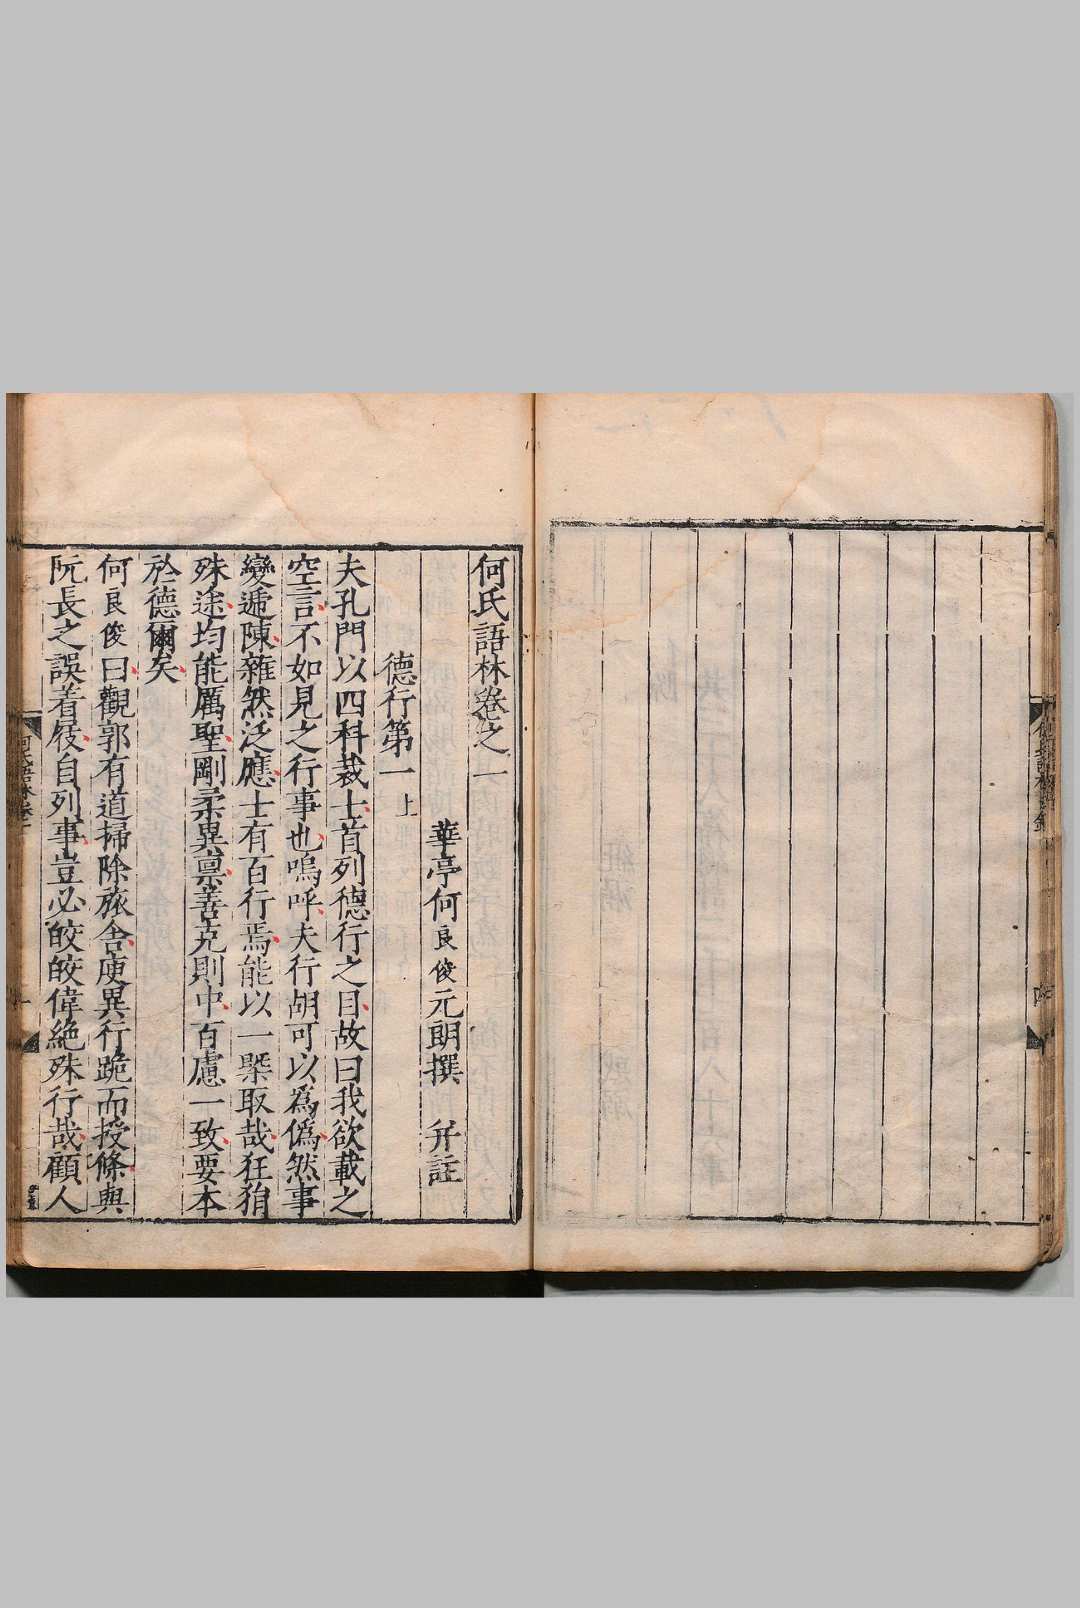 何氏語林卷之一
華亭何良俊元朗撰　并註
德行第一上
夫孔門以四科裁士首列德行之目故曰我欲載之
空言不如見之行事也嗚呼夫行胡可以爲僞然事
變遞陳雜然泛應士有百行焉能以一槩取哉狂狷
殊途均能厲聖剛柔異稟善克則中百慮一致要本
於德爾矣
何良俊曰觀郭有道掃除旅舍庾異行跪而授條與
阮長之誤着屐自列事豈必皎皎偉絶殊行哉顧人